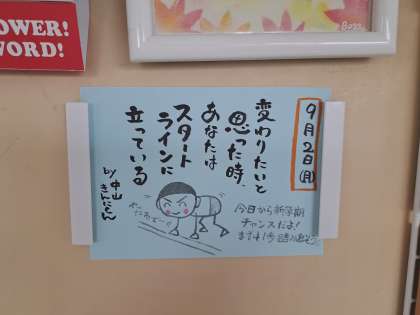 OWER!
WORD!
Boss
9月2日(月)
変わりたいと
思った時、
あなたは
スタート
ラインに
立っている
by 中山
きんにくん
今日から新学期
チャンスだよ!
まずは1歩